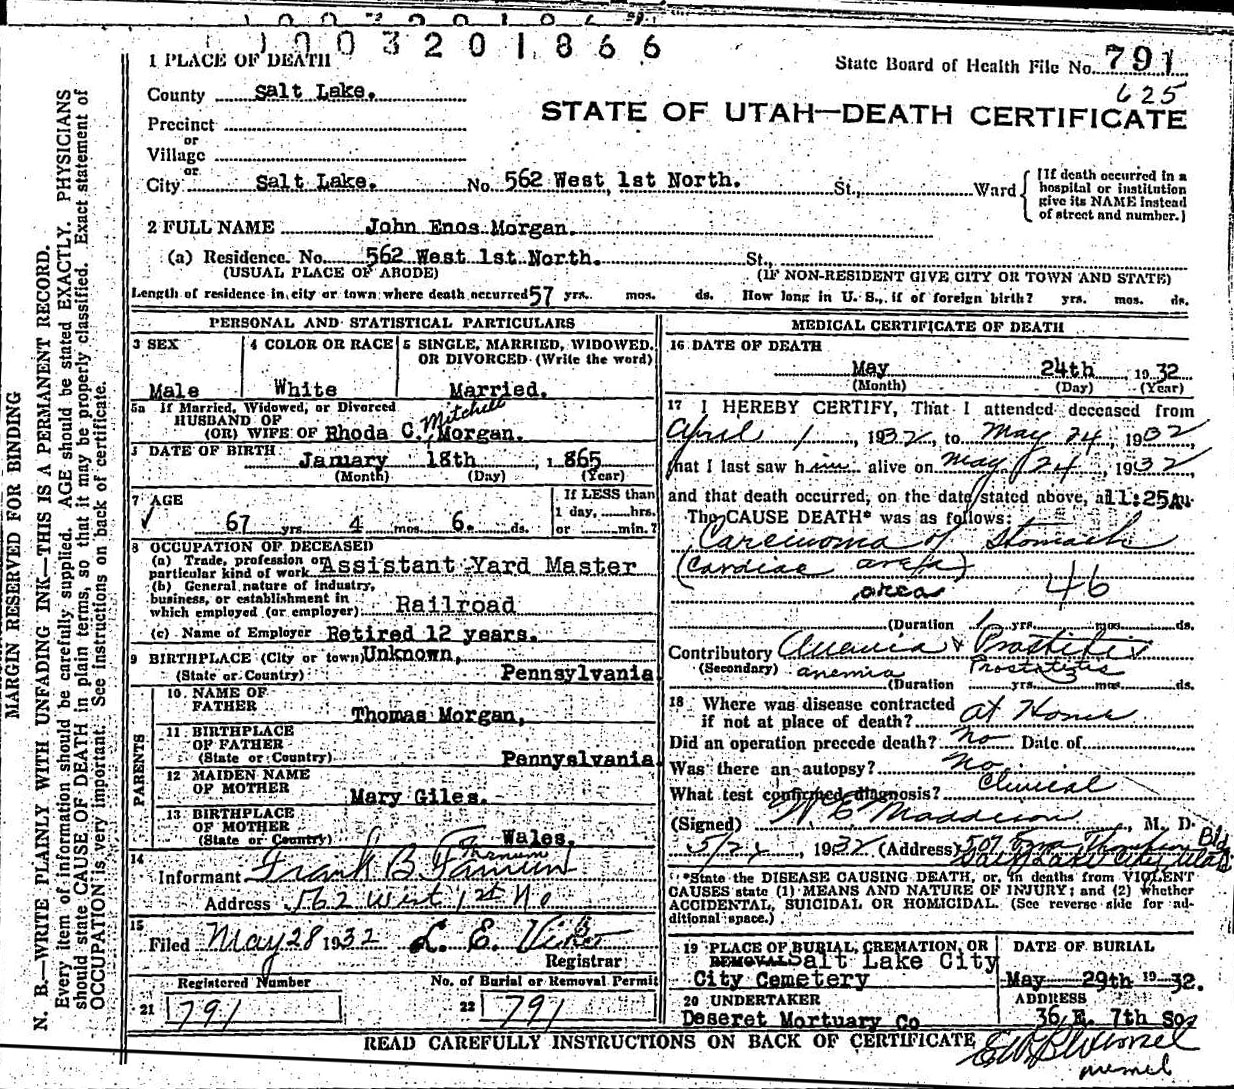 1003201866
1 PLACE OF DEATH
State Board of Health File No. 791
625
County Salt Lake.
STATE OF UTAH—DEATH CERTIFICATE
Precinct
or
Village
or
City Salt Lake. No. 562 West 1st North. St., Ward
[If death occurred in a hospital or institution give its NAME instead of street and number.]
2 FULL NAME John Enos Morgan.
(a) Residence. No. 562 West 1st North. St.,
(USUAL PLACE OF ABODE) (IF NON-RESIDENT GIVE CITY OR TOWN AND STATE)
Length of residence in city or town where death occurred 57 yrs. mos. ds. How long in U. S., if of foreign birth? yrs. mos. ds.
PERSONAL AND STATISTICAL PARTICULARS
3 SEX
Male
4 COLOR OR RACE
White
5 SINGLE, MARRIED, WIDOWED, OR DIVORCED (Write the word)
Married.
5a If Married, Widowed, or Divorced
HUSBAND OF
(OR) WIFE OF Rhoda C. Mitchell Morgan.
DATE OF BIRTH
January 18th, 1865
(Month) (Day) (Year)
7 AGE
67 yrs. 4 mos. 6. ds.
If LESS than
1 day, hrs.
or min.?
8 OCCUPATION OF DECEASED
(a) Trade, profession or
particular kind of work Assistant Yard Master
(b) General nature of industry,
business, or establishment in
which employed (or employer) Railroad
(c) Name of Employer Retired 12 years.
9 BIRTHPLACE (City or town) Unknown,
(State or Country) Pennsylvania
PARENTS
10 NAME OF
FATHER
Thomas Morgan,
11 BIRTHPLACE
OF FATHER
(State or Country) Pennyslvania
12 MAIDEN NAME
OF MOTHER
Mary Giles.
13 BIRTHPLACE
OF MOTHER
(State or Country) Wales.
14
Informant Frank B
Address 562 West 1st No
15
Filed May 28 1932 L. E.
Registrar
Registered Number
21 791
No. of Burial or Removal Permit
22 791
MEDICAL CERTIFICATE OF DEATH
16 DATE OF DEATH
May 24th 1932
(Month) (Day) (Year)
17 I HEREBY CERTIFY, That I attended deceased from
April 1, 1932, to May 24, 1932
that I last saw him alive on May 24, 1932
and that death occurred, on the date stated above, at 11:25A M.
The CAUSE DEATH* was as follows:
Carcinoma of Stomach
(Cardiac area)
area 46
(Duration 1 yrs. mos. ds.
Contributory Anemia & Prostatitis
(Secondary) anemia Prostatitis
(Duration yrs. mos. ds.
18 Where was disease contracted
if not at place of death? at Home
Did an operation precede death? No Date of
Was there an autopsy? No
What test confirmed diagnosis? Clinical
(Signed) W E Maddison, M. D.
5/24, 1932 (Address) 507 Bld
Salt Lake City Utah
*State the DISEASE CAUSING DEATH, or, in deaths from VIOLENT
CAUSES state (1) MEANS AND NATURE OF INJURY; and (2) whether
ACCIDENTAL, SUICIDAL OR HOMICIDAL. (See reverse side for ad-
ditional space.)
19 PLACE OF BURIAL, CREMATION, OR
REMOVAL Salt Lake City
City Cemetery
DATE OF BURIAL
May 29th 1932.
20 UNDERTAKER
Deseret Mortuary Co
ADDRESS
36 E. 7th So.
READ CAREFULLY INSTRUCTIONS ON BACK OF CERTIFICATE
MARGIN RESERVED FOR BINDING
N. B.—WRITE PLAINLY WITH UNFADING INK—THIS IS A PERMANENT RECORD.
Every item of information should be carefully supplied. AGE should be stated EXACTLY. PHYSICIANS
should state CAUSE OF DEATH in plain terms, so that it may be properly classified. Exact statement of
OCCUPATION is very important. See instructions on back of certificate.